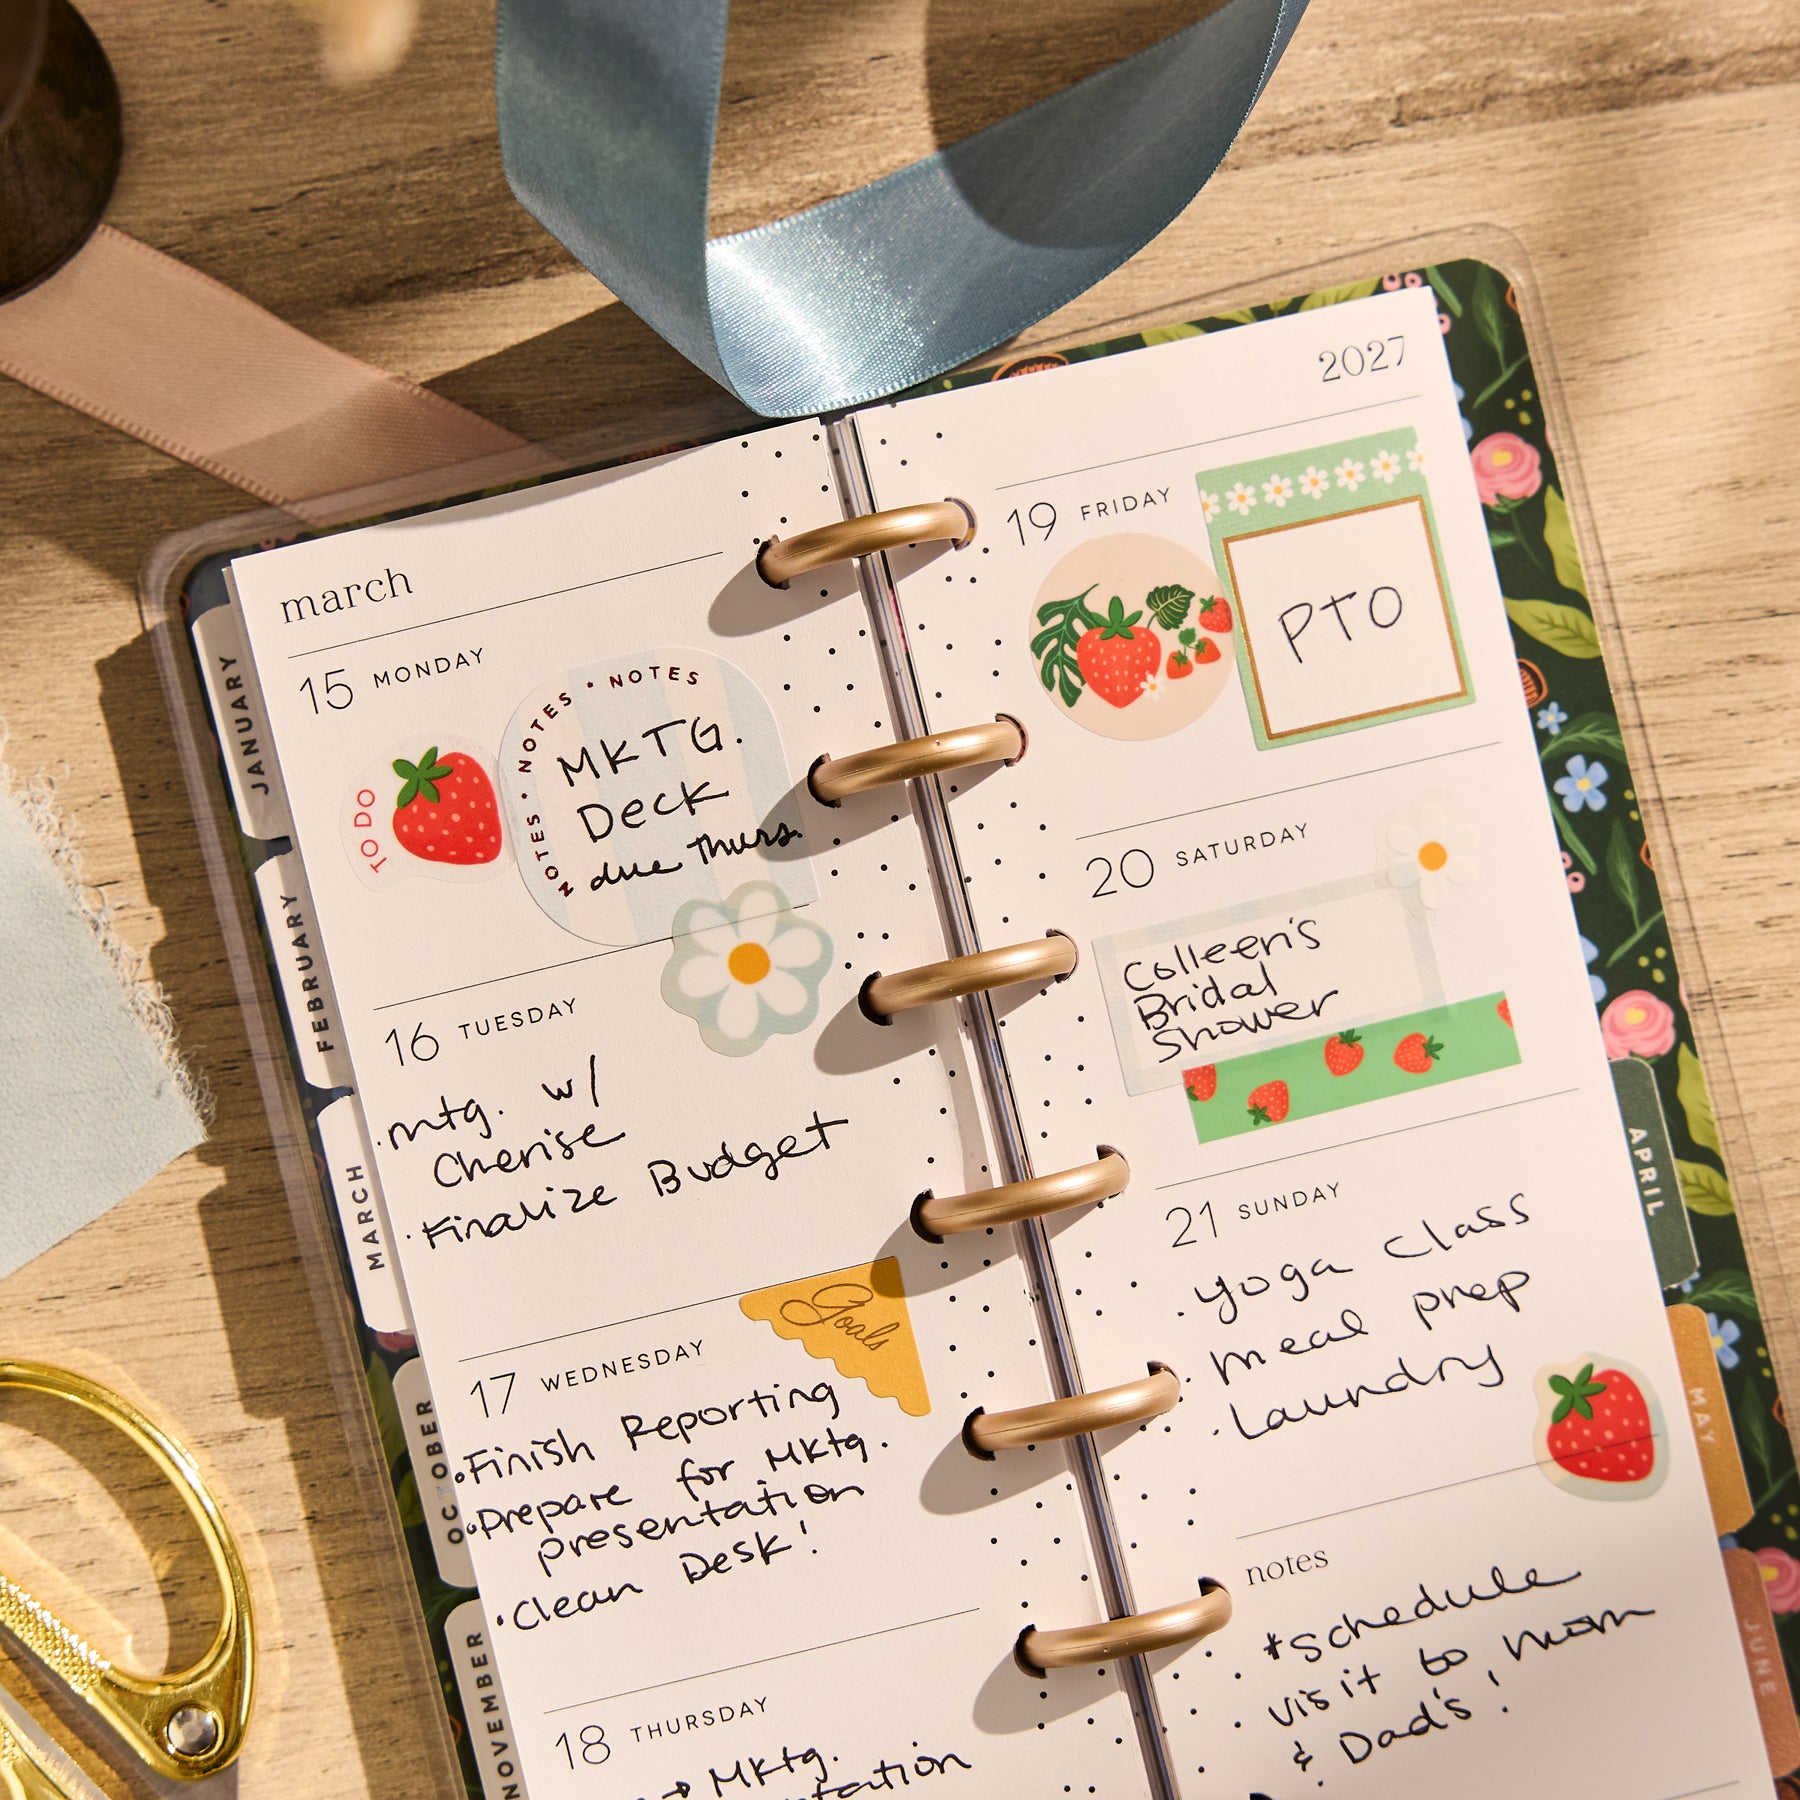 march
15 MONDAY
TO DO
NOTES • NOTES • NOTES
MKTG.
Deck
due Thurs.
16 TUESDAY
• mtg. w/
Cherise
• Finalize Budget
17 WEDNESDAY
Goals
• Finish Reporting
• Prepare for Mktg.
presentation
• Clean Desk!
18 THURSDAY
→ Mktg.
2027
19 FRIDAY
PTO
20 SATURDAY
Colleen's
Bridal
Shower
21 SUNDAY
• yoga class
• meal prep
• Laundry
notes
*Schedule
visit to mom
& Dad's!
JANUARY
FEBRUARY
MARCH
OCTOBER
NOVEMBER
APRIL
MAY
JUNE